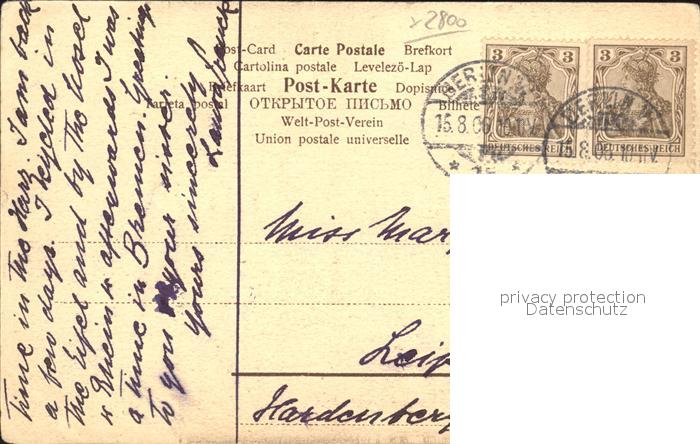 x2800
Post-Card Carte Postale Brefkort
Cartolina postale Levelező-Lap
Briefkaart Post-Karte Dopisnice
Tarjeta postal ОТКРЫТОЕ ПИСЬМО Bilhete
Welt-Post-Verein
Union postale universelle
3 3 3 3
DEUTSCHES REICH DEUTSCHES REICH
BERLIN
15.8.06.10-11V.
BERLIN
15.8.06.10-11V.
time in the Harz. I am back
a few days. I cycled in
the Eifel and by the Mosel
& Rhein & afterwards I was
a time in Bremen. Greetings
to you & your sister.
Yours sincerely
Miss Mar
Leip
Hardenberg
privacy protection
Datenschutz